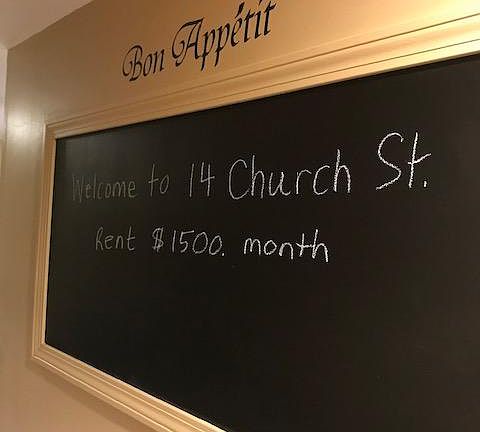 Bon Appétit
Welcome to 14 Church St.
Rent $1500. month